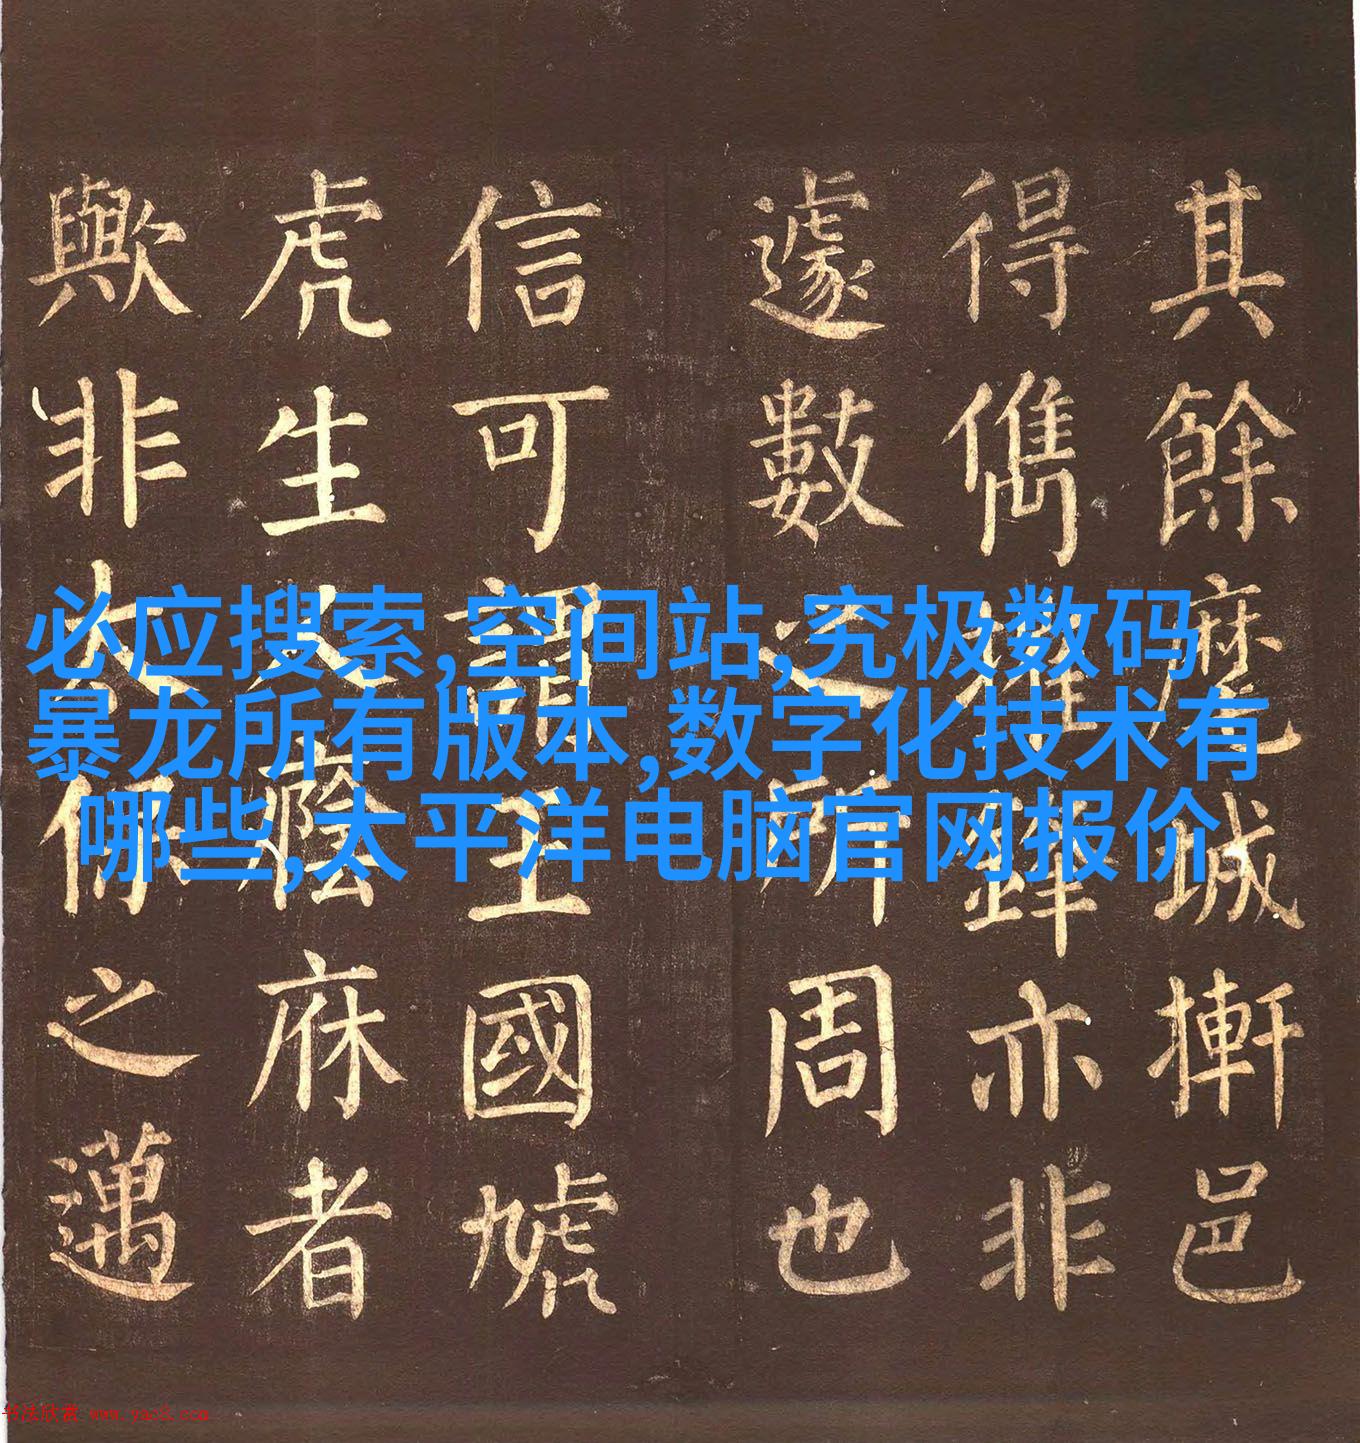 其餘麾城摲邑
得儁鋒亦非
遽數之所周也
信可謂王國虓
虎生人廕庥者
歟非太保之邁
必应搜索,空间站,究极数码
暴龙所有版本,数字化技术有
哪些,太平洋电脑官网报价
书法欣赏 www.yac8.com